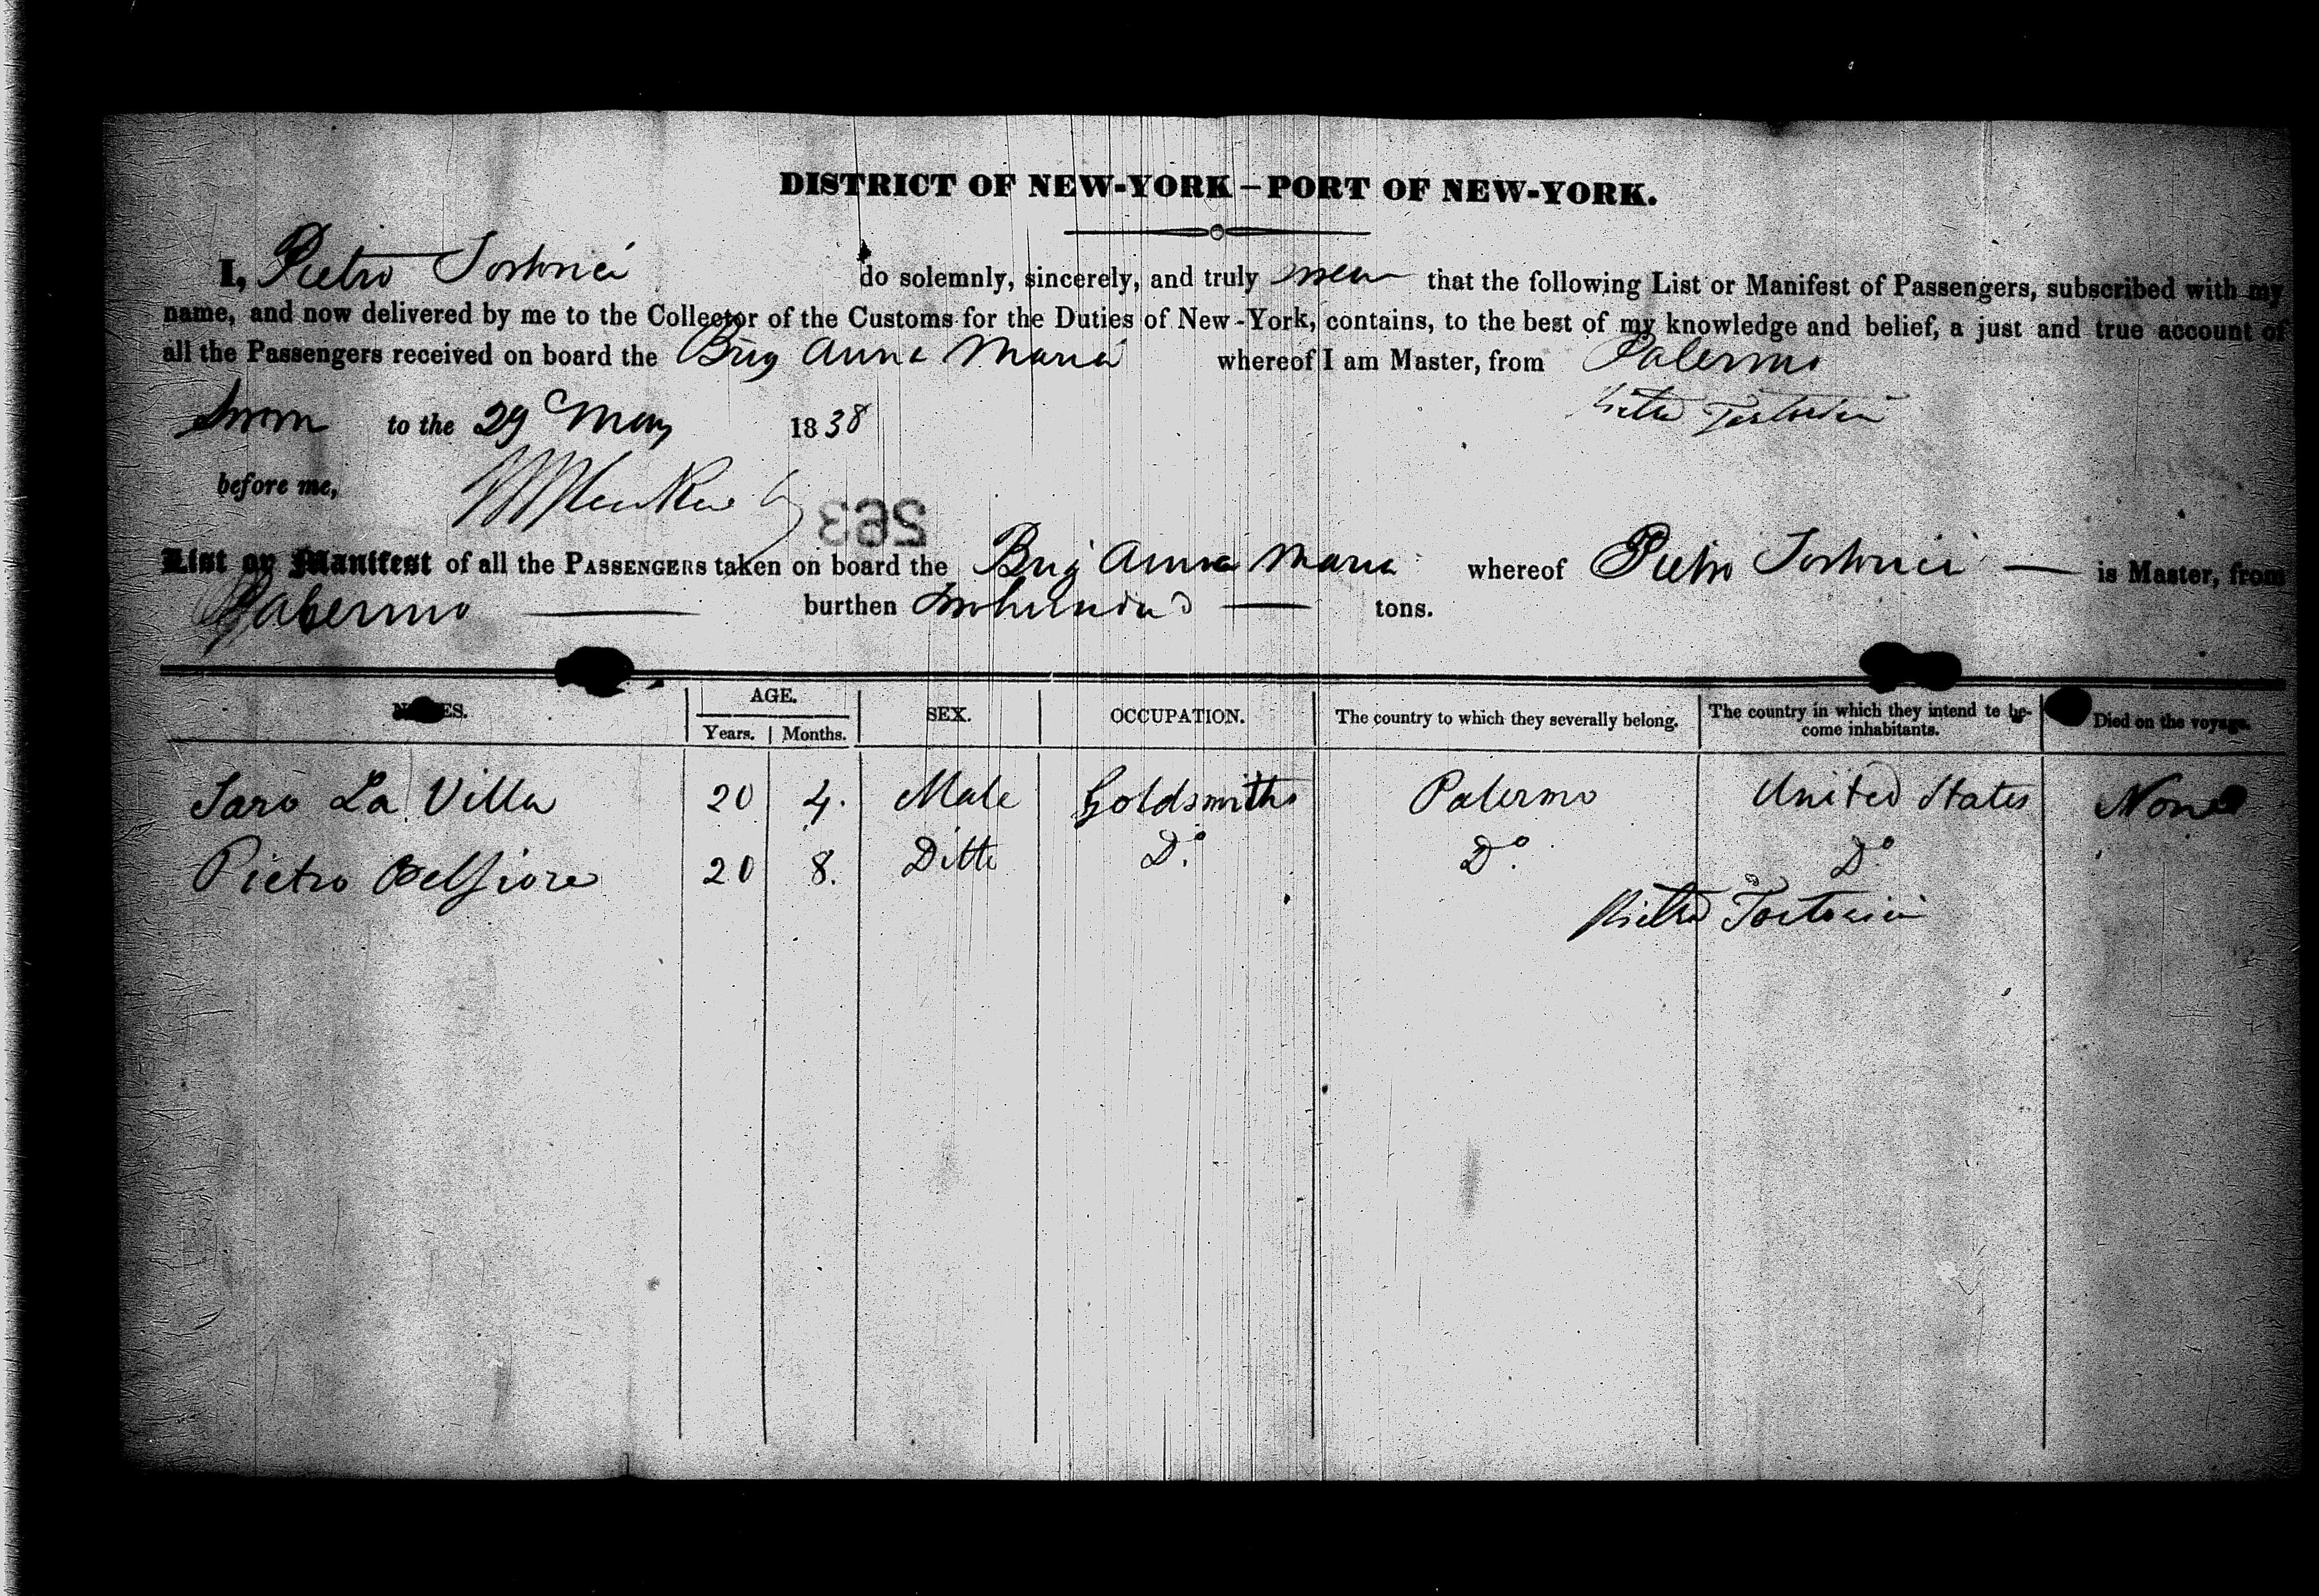 DISTRICT OF NEW-YORK – PORT OF NEW-YORK.
I, Pietro Tortorici do solemnly, sincerely, and truly swear that the following List or Manifest of Passengers, subscribed with my
name, and now delivered by me to the Collector of the Customs for the Duties of New-York, contains, to the best of my knowledge and belief, a just and true account of
all the Passengers received on board the Brig Anna Maria whereof I am Master, from Palermo
Sworn to the 29 May 1838 Pietro Tortorici
before me,
563
List or Manifest of all the PASSENGERS taken on board the Brig Anna Maria whereof Pietro Tortorici is Master, from
Palermo burthen tons.
NAMES. AGE. SEX. OCCUPATION. The country to which they severally belong. The country in which they intend to be- Died on the voyage.
Years. Months. come inhabitants.
Saro La Villa 20 4. Male Goldsmiths Palermo United States None
Pietro Belfiore 20 8. Ditto Dº. Dº. Dº
Pietro Tortorici